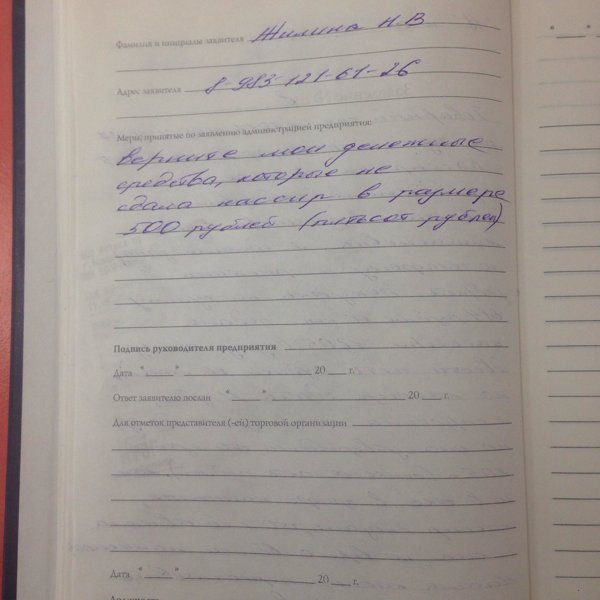 Фамилия и инициалы заявителя Жилина Н.В
Адрес заявителя 8-983-121-61-26
Меры, принятые по заявлению администрацией предприятия:
верните мои денежные
средства, которые не
сдала кассир в размере
500 рублей (пятьсот рублей)
Подпись руководителя предприятия
Дата "___" ___ 20__ г.
Ответ заявителю послан "___" ___ 20__ г.
Для отметок представителя (-ей) торговой организации
Дата "___" ___ 20__ г.
Должность